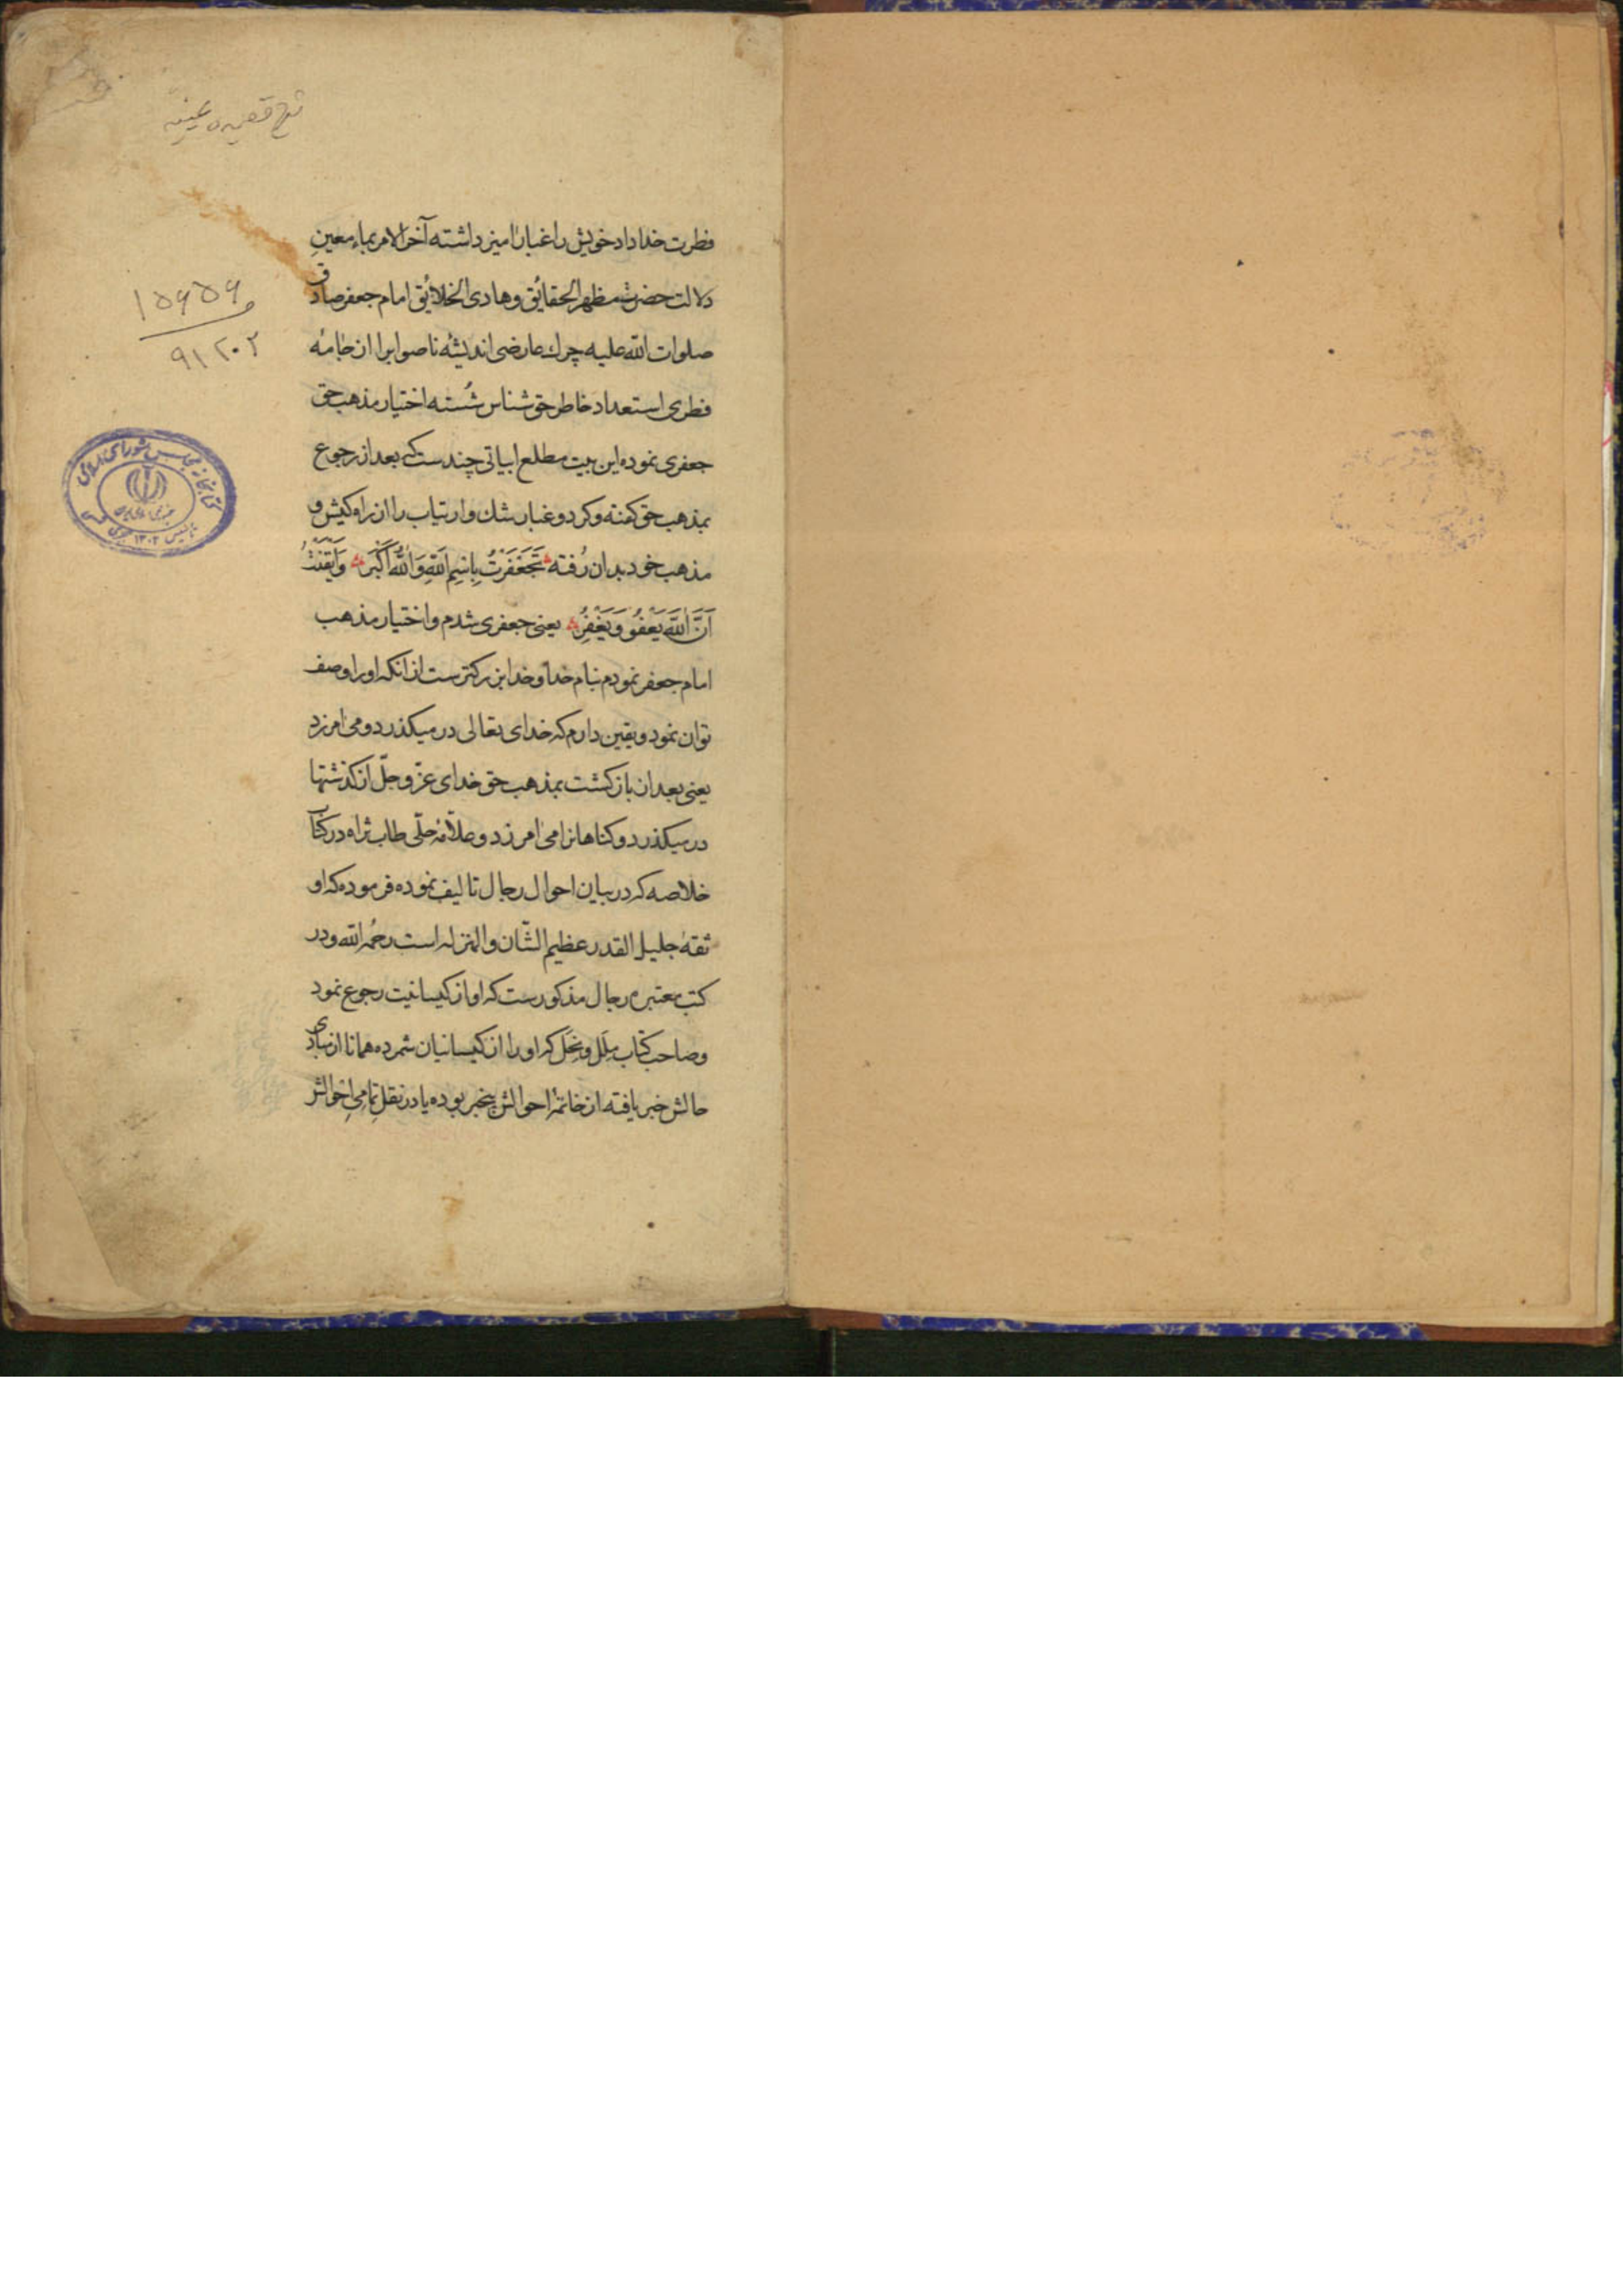 شرح قصیده عینیه
فطرت خداداد خویش را غبار امیز داشته آخر الامر بماء معین
دلالت حضرت مظهر الحقائق و هادی الخلائق امام جعفر صادق
صلوات الله علیه چرك عارضی اندیشهٔ ناصوابرا از جامهٔ
فطری استعداد خاطر حق شناس شُسته اختیار مذهب حق
جعفری نموده این بیت مطلع ابیاتی چندست که بعد از رجوع
بمذهب حق کفته و کرد و غبار شك و ارتیاب را از راه کیش و
مذهب خود بدان رُفته تَجَعْفَرْتُ بِاسْمِ اللهِ وَاللهُ اَكْبَرُ وَاَيْقَنْتُ
اَنَّ اللهَ يَعْفُو وَيَغْفِرُ یعنی جعفری شدم و اختیار مذهب
امام جعفر نمودم بنام خدا و خدا بزرکترست از انکه او را وصف
توان نمود و یقین دارم که خدای تعالی در میکذرد و می امرزد
یعنی بعد از باز کشت بمذهب حق خدای عزّ و جلّ از کذشتها
در میکذرد و کناهانرا می امرزد و علاّمهٔ حلّی طاب ثراه در کتاب
خلاصه که در بیان احوال رجال تالیف نموده فرموده که او
ثقهٔ جلیل القدر عظیم الشّان و المنزله است رحمه الله و در
کتب معتبره رجال مذکورست که او از کیسانیت رجوع نمود
و صاحب کتاب مِلَل و نِحَل که او را از کیسانیان شمرده همانا از مبادی
حالش خبر یافته از خاتمهٔ احوالش بیخبر بوده یا در نقل تمامی احوالش
۱۵۶۵۶
۹۱۲۰۲
کتابخانه مجلس شورای اسلامی
تاسیس ۱۳۰۲